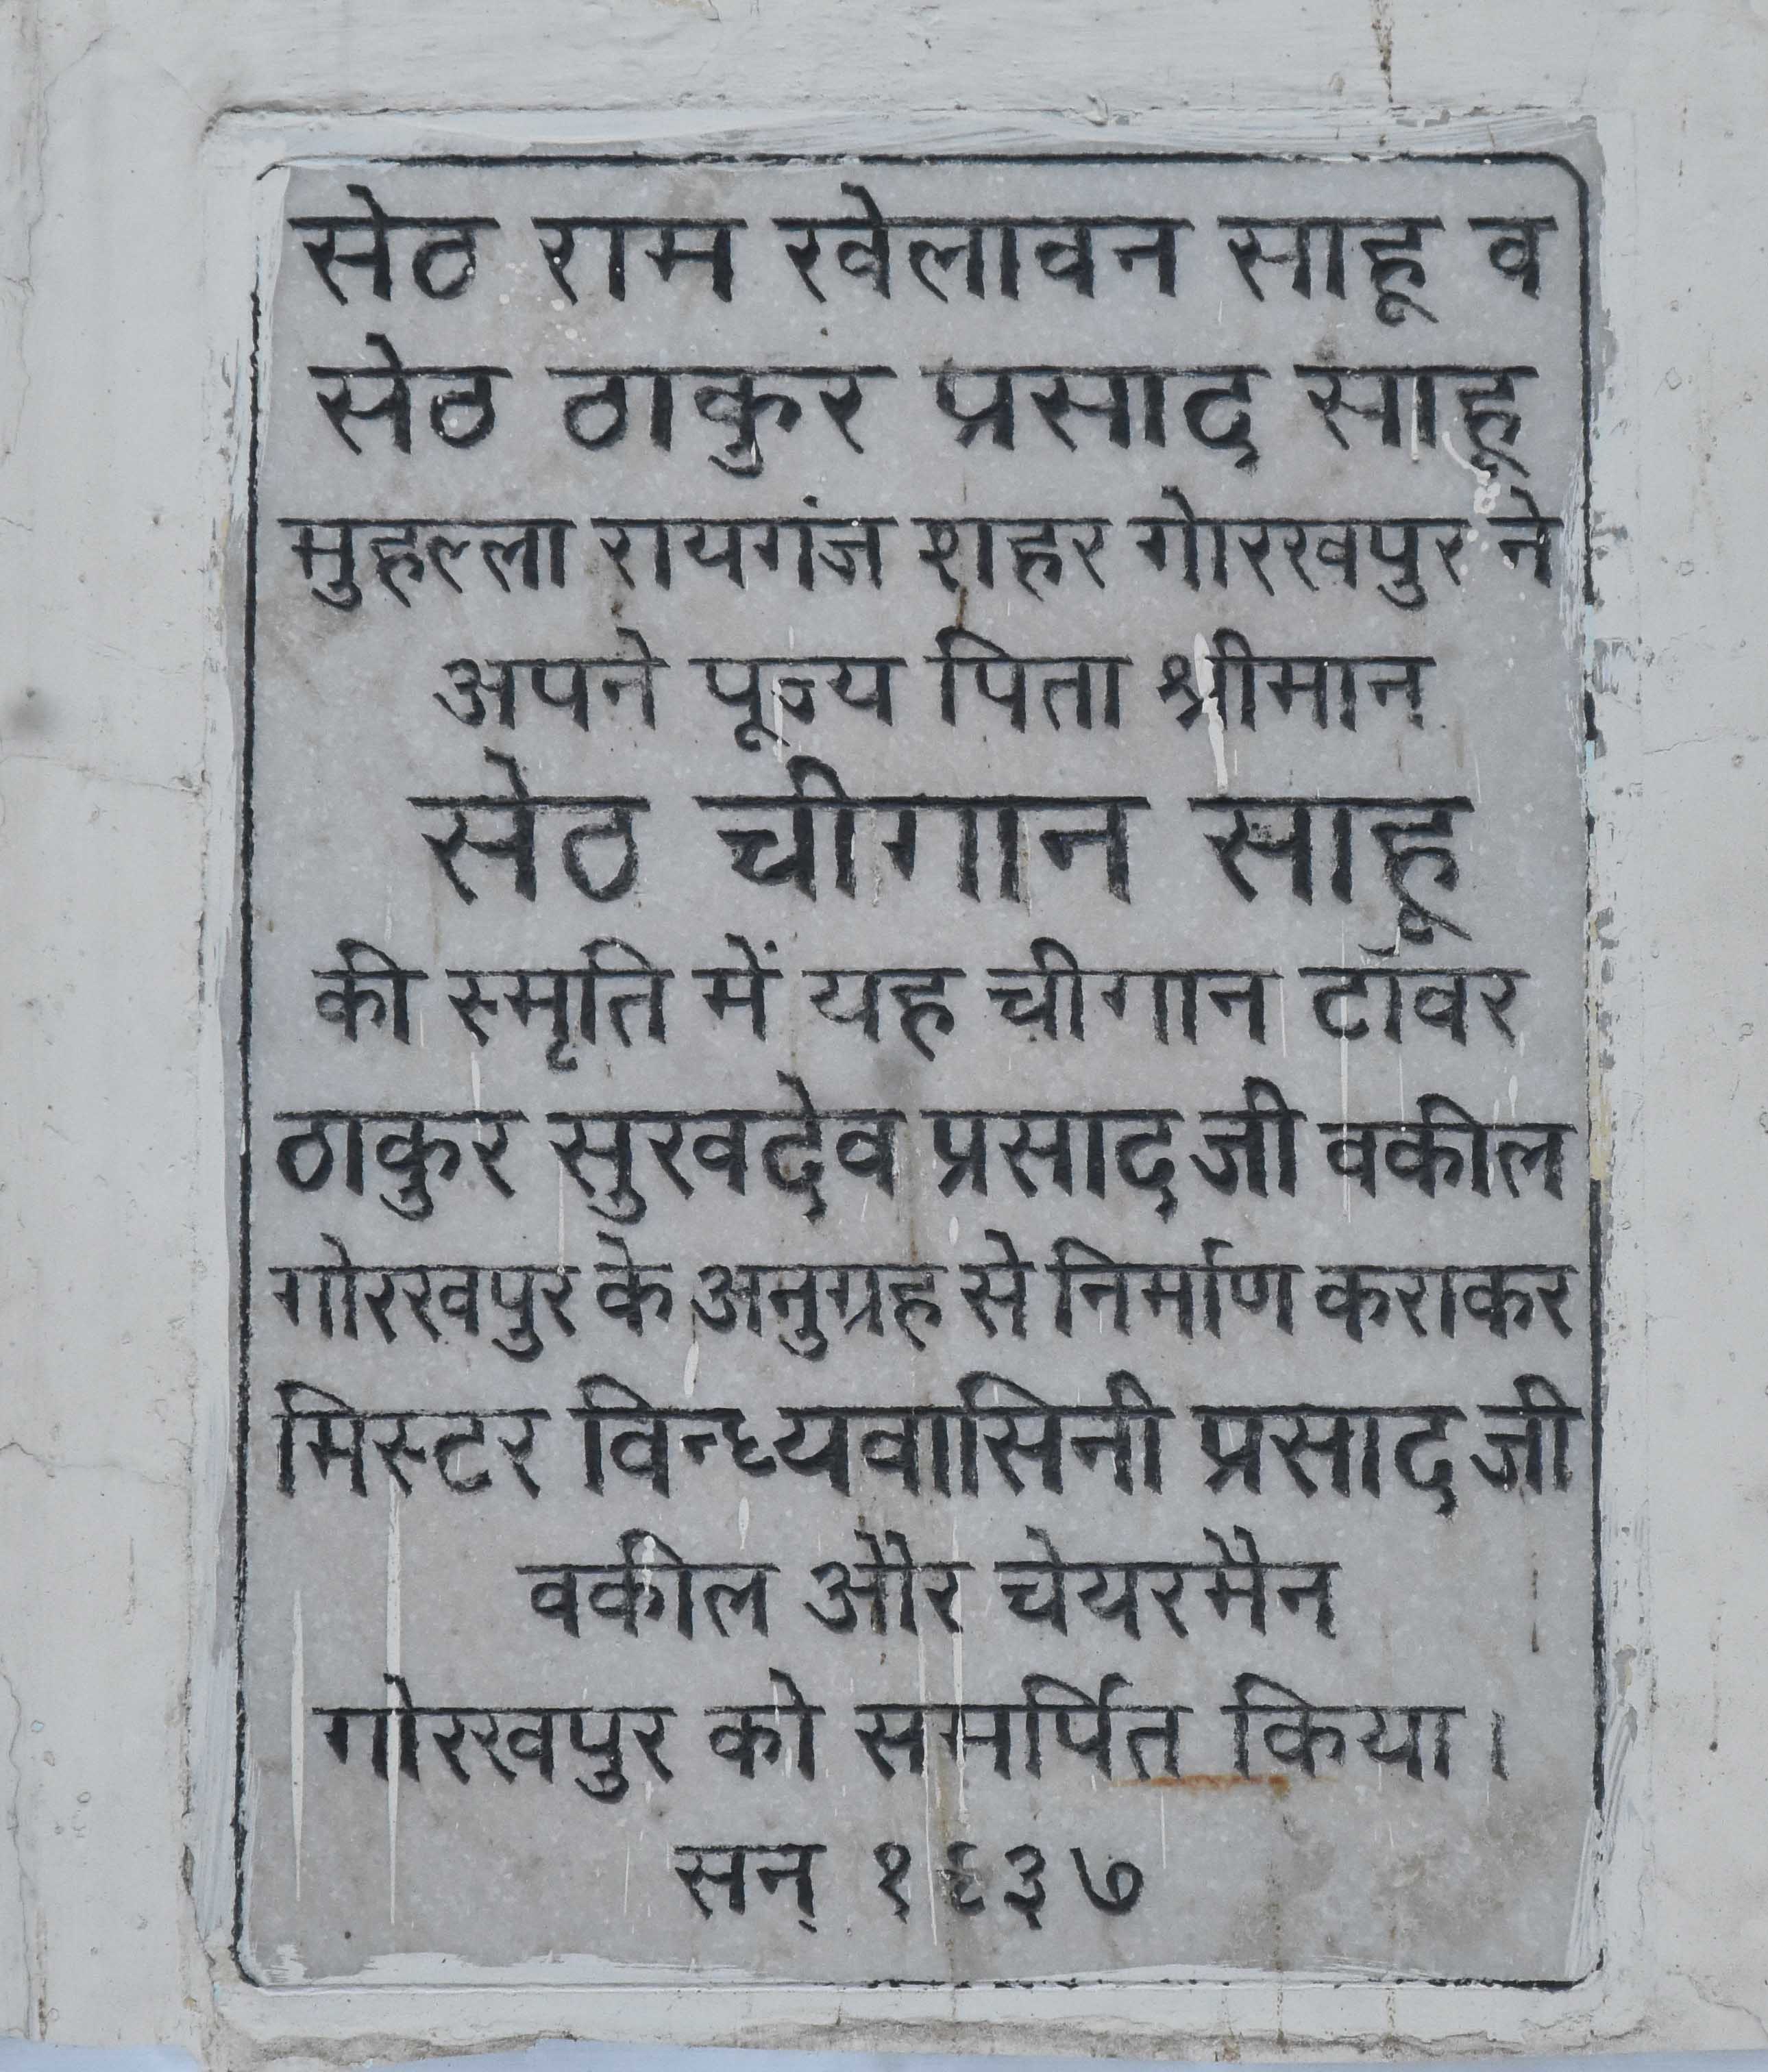 सेठ राम खेलावन साहू व
सेठ ठाकुर प्रसाद साहू
मुहल्ला रायगंज शहर गोरखपुर ने
अपने पूज्य पिता श्रीमान
सेठ चीगान साहू
की स्मृति में यह चीगान टॉवर
ठाकुर सुखदेव प्रसाद जी वकील
गोरखपुर के अनुग्रह से निर्माण कराकर
मिस्टर विन्ध्यवासिनी प्रसाद जी
वकील और चेयरमैन
गोरखपुर को समर्पित किया।
सन् १९३७